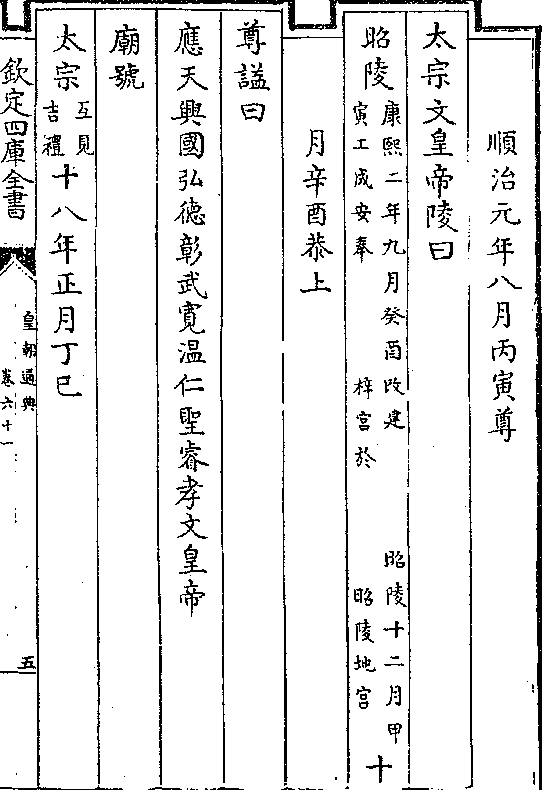 順治元年八月丙寅尊
太宗文皇帝陵曰
昭陵康熙二年九月癸酉改建昭陵十二月甲寅工成安奉梓宫於昭陵地宫十
月辛酉恭上
尊諡曰
應天興國弘德彰武寛温仁聖睿孝文皇帝
廟號
太宗互見吉禮十八年正月丁巳
欽定四庫全書
皇朝通典
卷六十一
五